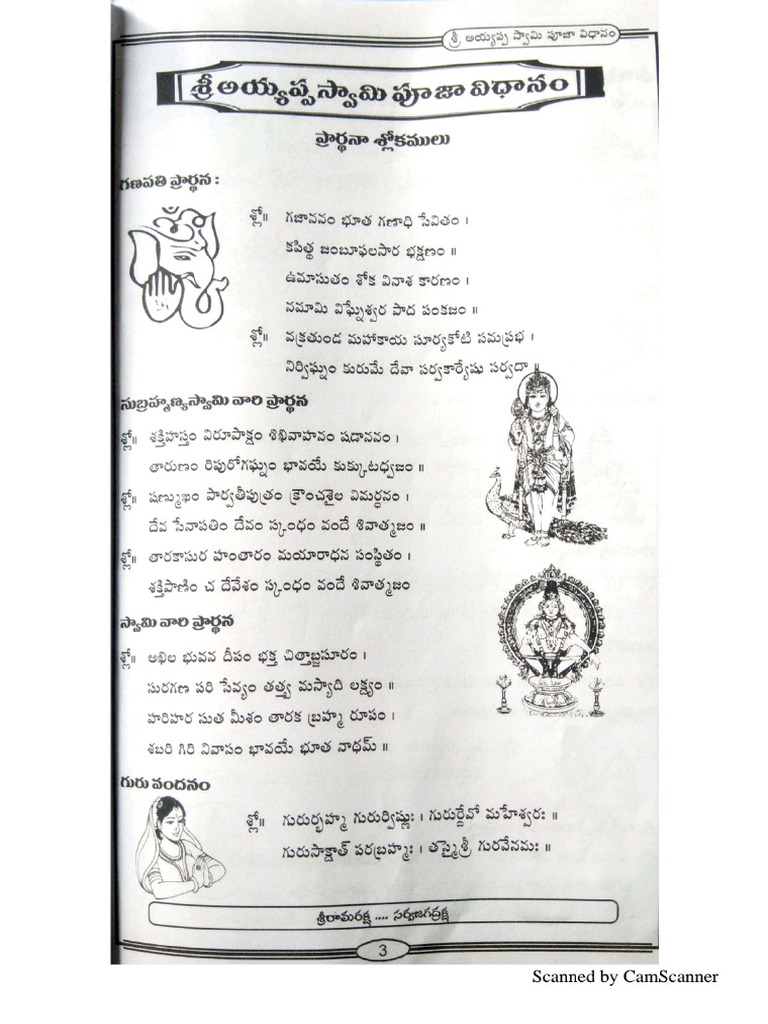 శ్రీ అయ్యప్ప స్వామి పూజా విధానం
శ్రీ అయ్యప్పస్వామి పూజా విధానం
ప్రార్థనా శ్లోకములు
గణపతి ప్రార్థన :
శ్లో॥ గజాననం భూత గణాధి సేవితం ।
కపిత్థ జంబూఫలసార భక్షణం ॥
ఉమాసుతం శోక వినాశ కారణం ।
నమామి విఘ్నేశ్వర పాద పంకజం ॥
శ్లో॥ వక్రతుండ మహాకాయ సూర్యకోటి సమప్రభ ।
నిర్విఘ్నం కురుమే దేవా సర్వకార్యేషు సర్వదా ॥
సుబ్రహ్మణ్యస్వామి వారి ప్రార్థన
శ్లో॥ శక్తిహస్తం విరూపాక్షం శిఖివాహనం షడాననం ।
తారుణం రిపురోగఘ్నం భావయే కుక్కుటధ్వజం ॥
శ్లో॥ షణ్ముఖం పార్వతీపుత్రం క్రౌంచశైల విమర్ధనం ।
దేవ సేనాపతిం దేవం స్కంధం వందే శివాత్మజం ॥
శ్లో॥ తారకాసుర హంతారం మయారాధన సంస్థితం ।
శక్తిపాణిం చ దేవేశం స్కంధం వందే శివాత్మజం
స్వామి వారి ప్రార్థన
శ్లో॥ అఖిల భువన దీపం భక్త చిత్తాబ్జసూరం ।
సురగణ పరి సేవ్యం తత్త్వ మస్యాది లక్ష్యం ।
హరిహర సుత మీశం తారక బ్రహ్మ రూపం ।
శబరి గిరి నివాపం భావయే భూత నాథమ్ ॥
గురు వందనం
శ్లో॥ గురుర్బ్రహ్మ గురుర్విష్ణుః । గురుర్దేవో మహేశ్వరః ॥
గురుసాక్షాత్ పరబ్రహ్మః । తస్మైశ్రీ గురవేనమః ॥
శ్రీరామరక్ష .... సర్వజగద్రక్ష
3
Scanned by CamScanner